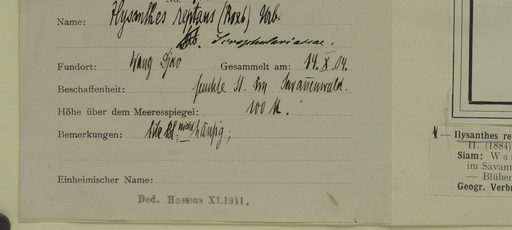 Name: Ilysanthes reptans (Roxb) Urb.
Scrophulariaceae.
Fundort: Wang Djao Gesammelt am: 14. X. 04.
Beschaffenheit: feuchte St. im Savannenwald.
Höhe über dem Meeresspiegel: 100 M.
Bemerkungen: lila Bl; nicht häufig;
Einheimischer Name:
Ded. Hosseus XI.1911.
Ilysanthes re
II. (1884)
Siam: Wa
im Savann
— Blüher
Geogr. Verbr